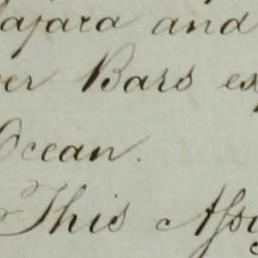 lajara and
er Bars ex
Ocean.
This Assi